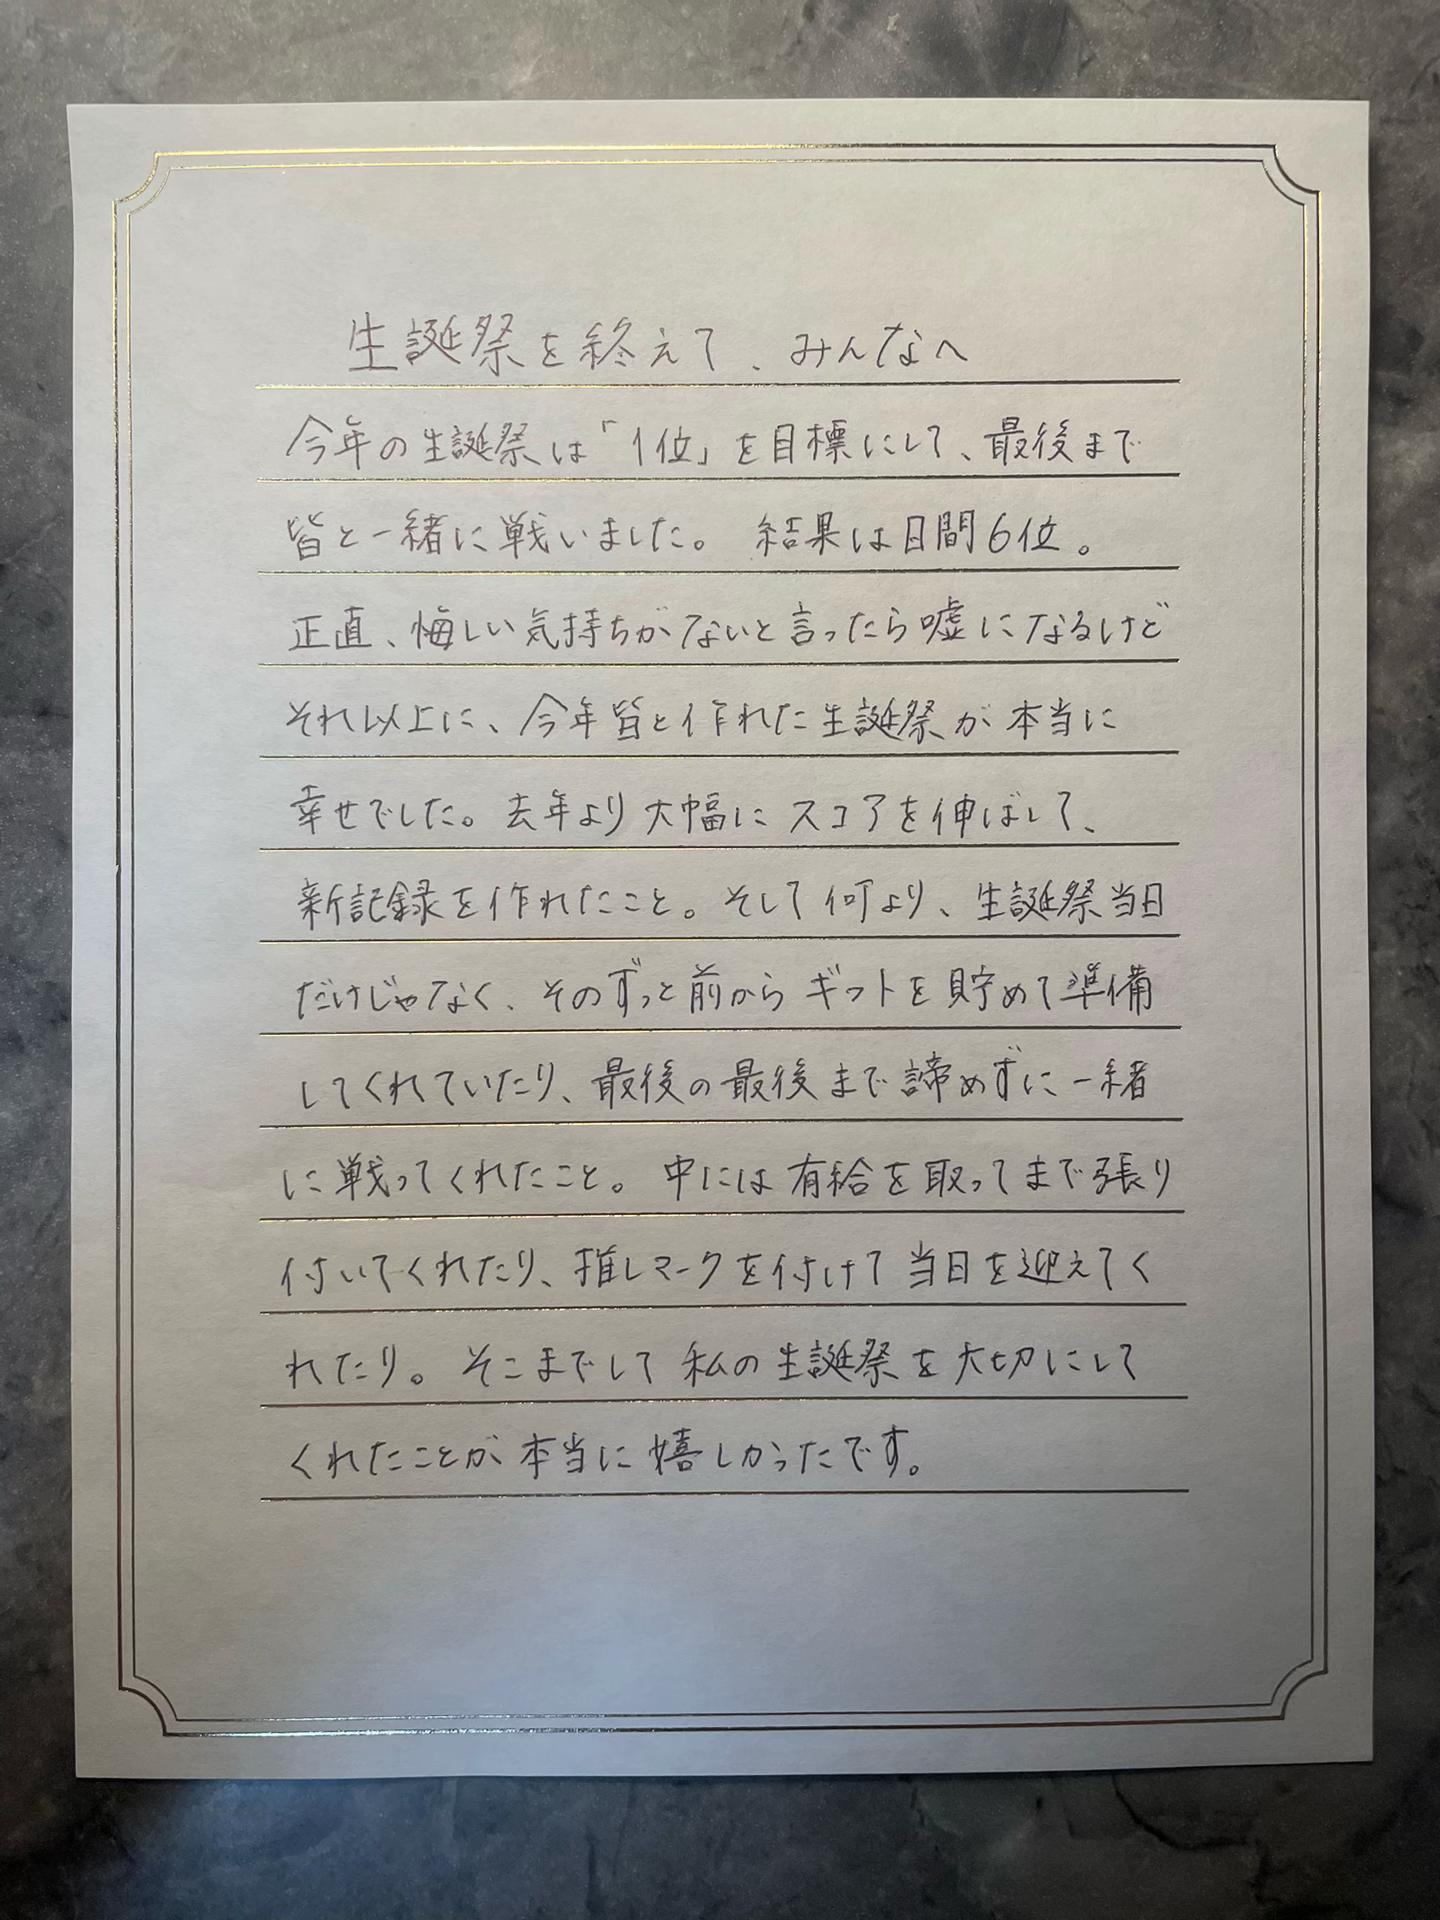 生誕祭を終えて、みんなへ
今年の生誕祭は「1位」を目標にして、最後まで
皆と一緒に戦いました。 結果は日間6位。
正直、悔しい気持ちがないと言ったら嘘になるけど
それ以上に、今年皆と作れた生誕祭が本当に
幸せでした。去年より大幅にスコアを伸ばして、
新記録を作れたこと。そして何より、生誕祭当日
だけじゃなく、そのずっと前からギフトを貯めて準備
してくれていたり、最後の最後まで諦めずに一緒
に戦ってくれたこと。 中には有給を取ってまで張り
付いてくれたり、推しマークを付けて当日を迎えてく
れたり。そこまでして私の生誕祭を大切にして
くれたことが本当に嬉しかったです。